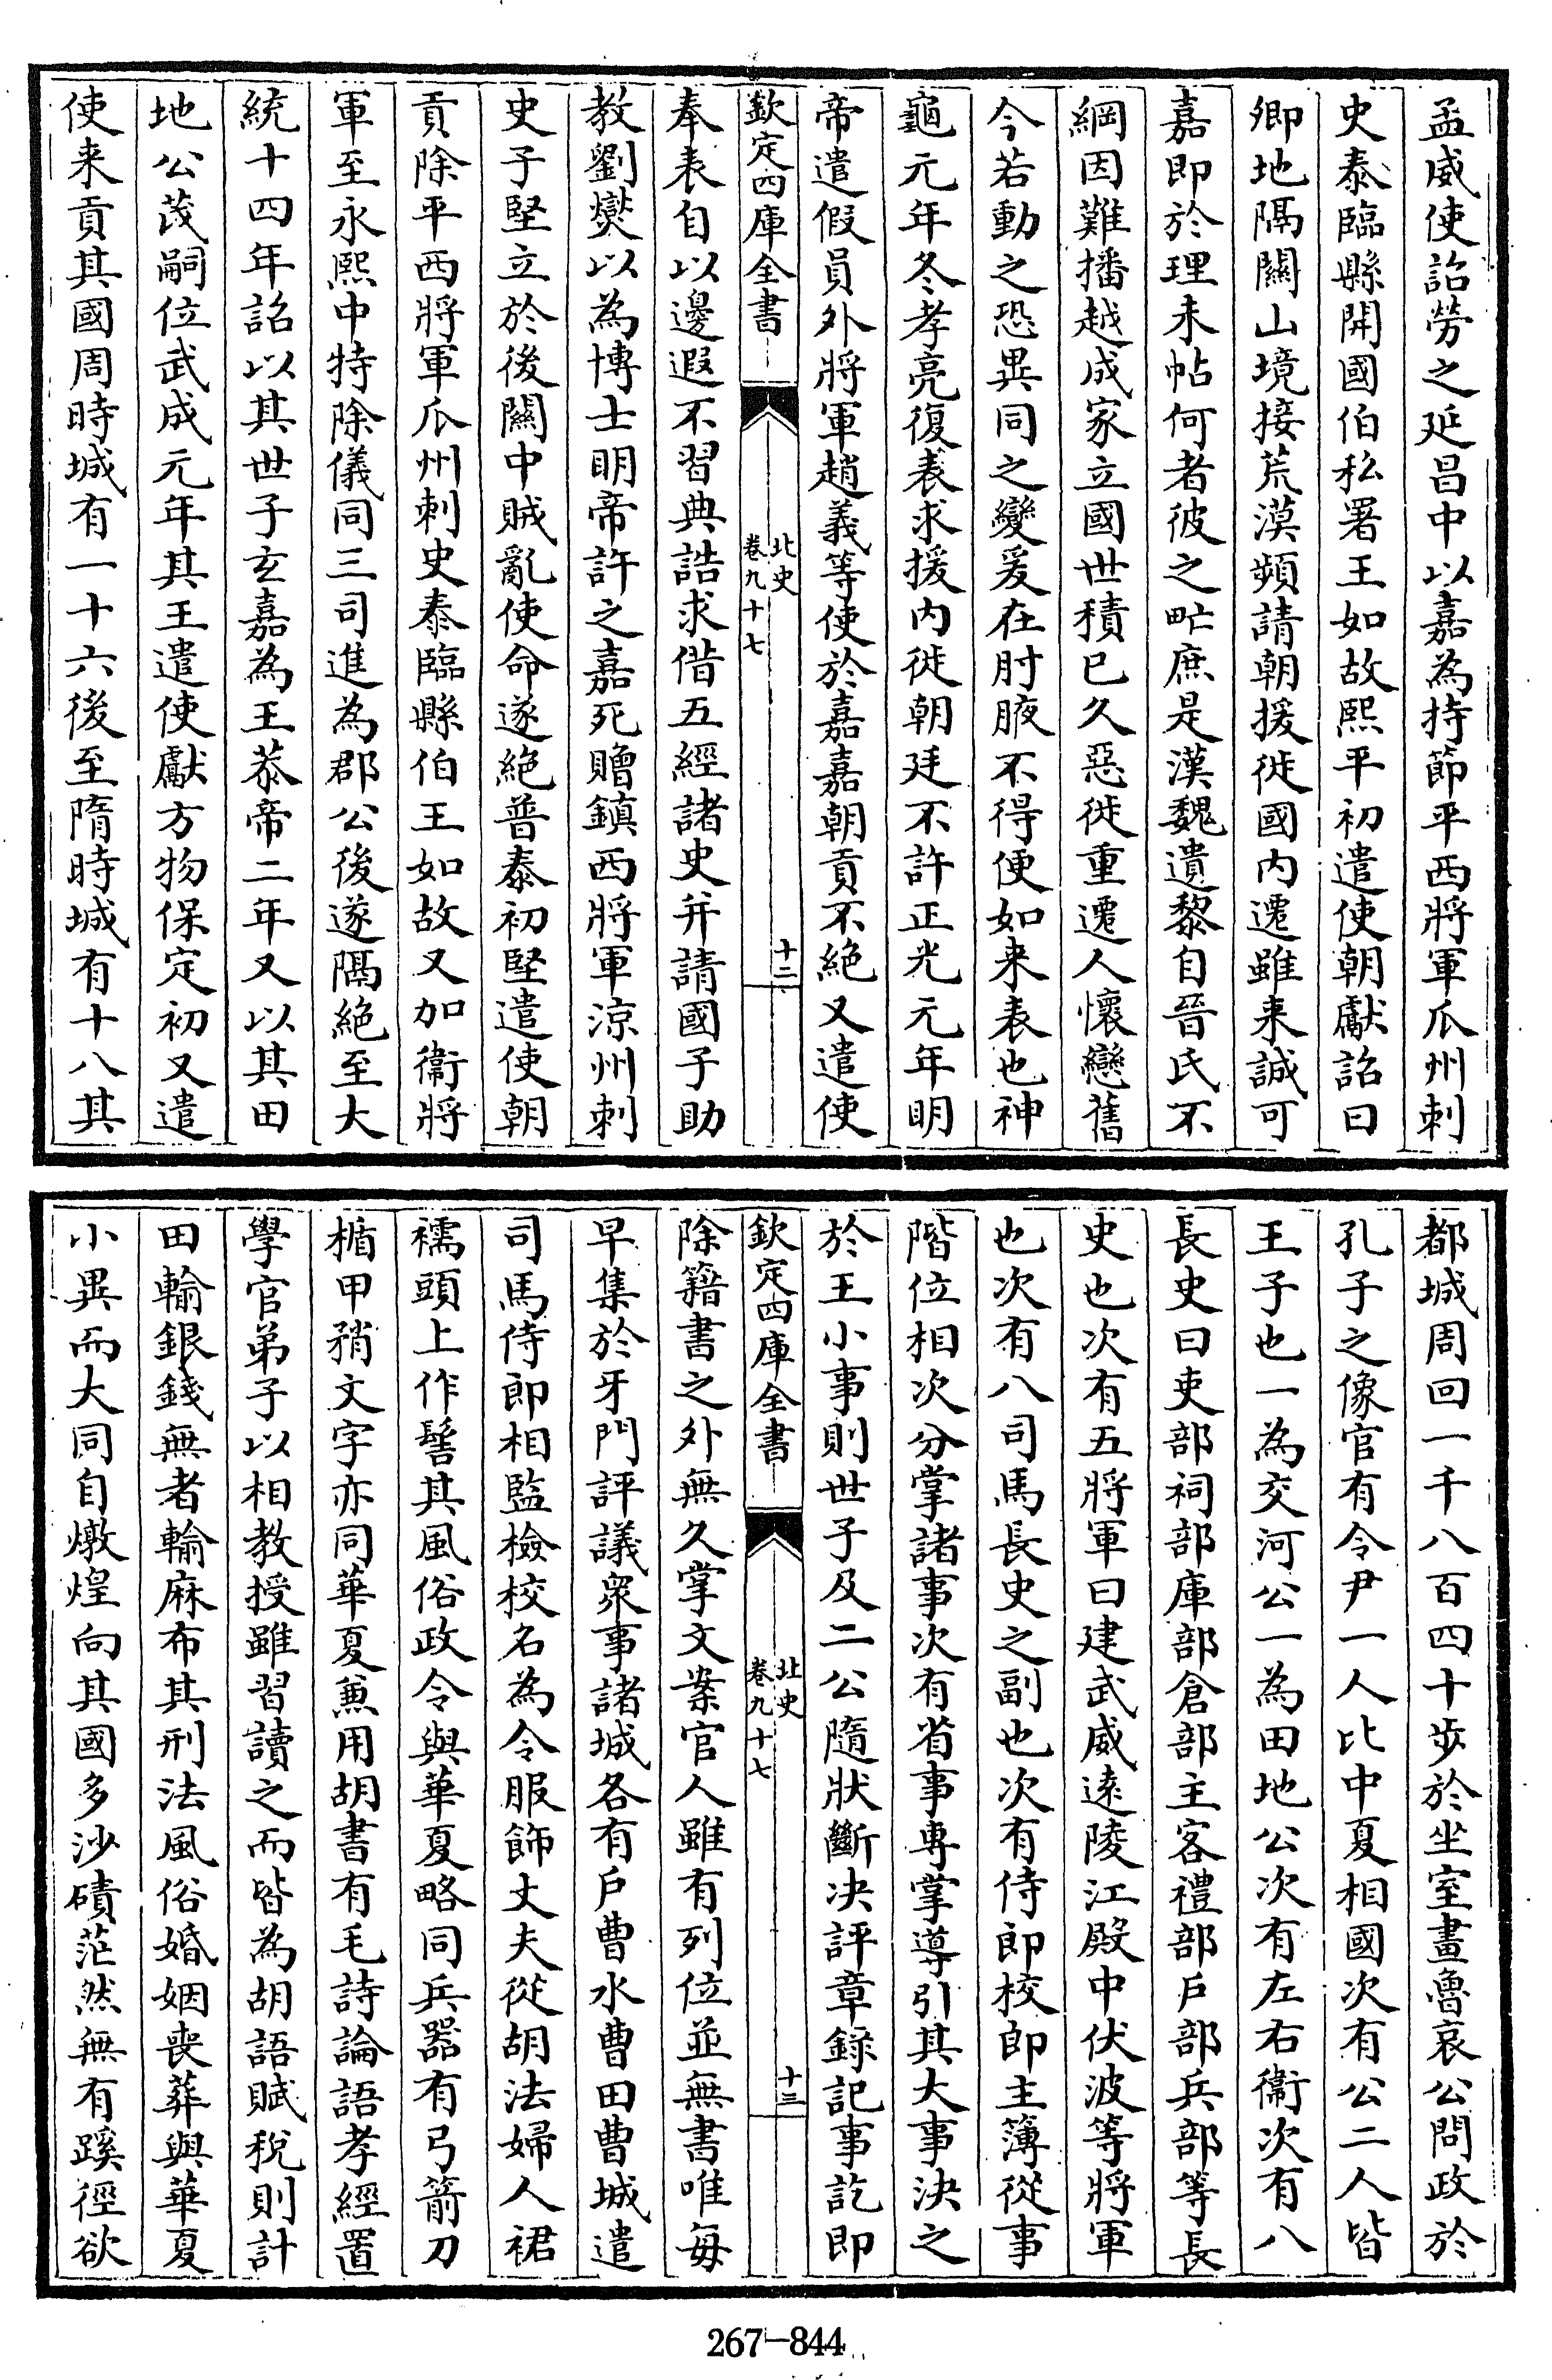 孟威使詔勞之延昌中以嘉為持節平西將軍瓜州刺
史泰臨縣開國伯私署王如故熙平初遣使朝獻詔曰
卿地隔關山境接荒漠頻請朝援徙國内遷雖来誠可
嘉即於理未帖何者彼之甿庶是漢魏遺黎自晉氏不
綱因難播越成家立國世積已久惡徙重遷人懷戀舊
今若動之恐異同之變爰在肘腋不得便如来表也神
龜元年冬孝亮復表求援内徙朝廷不許正光元年明
帝遣假員外將軍趙義等使於嘉嘉朝貢不絶又遣使
欽定四庫全書
北史
卷九十七
十二
奉表自以邊遐不習典誥求借五經諸史并請國子助
教劉爕以為博士明帝許之嘉死贈鎮西將軍涼州刺
史子堅立於後關中賊亂使命遂絶普泰初堅遣使朝
貢除平西將軍瓜州刺史泰臨縣伯王如故又加衞將
軍至永熙中特除儀同三司進為郡公後遂隔絶至大
統十四年詔以其世子玄嘉為王恭帝二年又以其田
地公茂嗣位武成元年其王遣使獻方物保定初又遣
使来貢其國周時城有一十六後至隋時城有十八其
都城周回一千八百四十步於坐室畫魯哀公問政於
孔子之像官有令尹一人比中夏相國次有公二人皆
王子也一為交河公一為田地公次有左右衞次有八
長史曰吏部祠部庫部倉部主客禮部戶部兵部等長
史也次有五將軍曰建武威逺陵江殿中伏波等將軍
也次有八司馬長史之副也次有侍郎校郎主簿從事
階位相次分掌諸事次有省事專掌導引其大事決之
於王小事則世子及二公隨狀斷决評章錄記事訖即
欽定四庫全書
北史
卷九十七
十三
除籍書之外無久掌文案官人雖有列位並無書唯每
早集於牙門評議衆事諸城各有戶曹水曹田曹城遣
司馬侍郎相監檢校名為令服飾丈夫從胡法婦人裙
襦頭上作髻其風俗政令與華夏略同兵器有弓箭刀
楯甲矟文字亦同華夏兼用胡書有毛詩論語孝經置
學官弟子以相教授雖習讀之而皆為胡語賦稅則計
田輸銀錢無者輸麻布其刑法風俗婚姻喪葬與華夏
小異而大同自燉煌向其國多沙磧茫然無有蹊徑欲
267-844